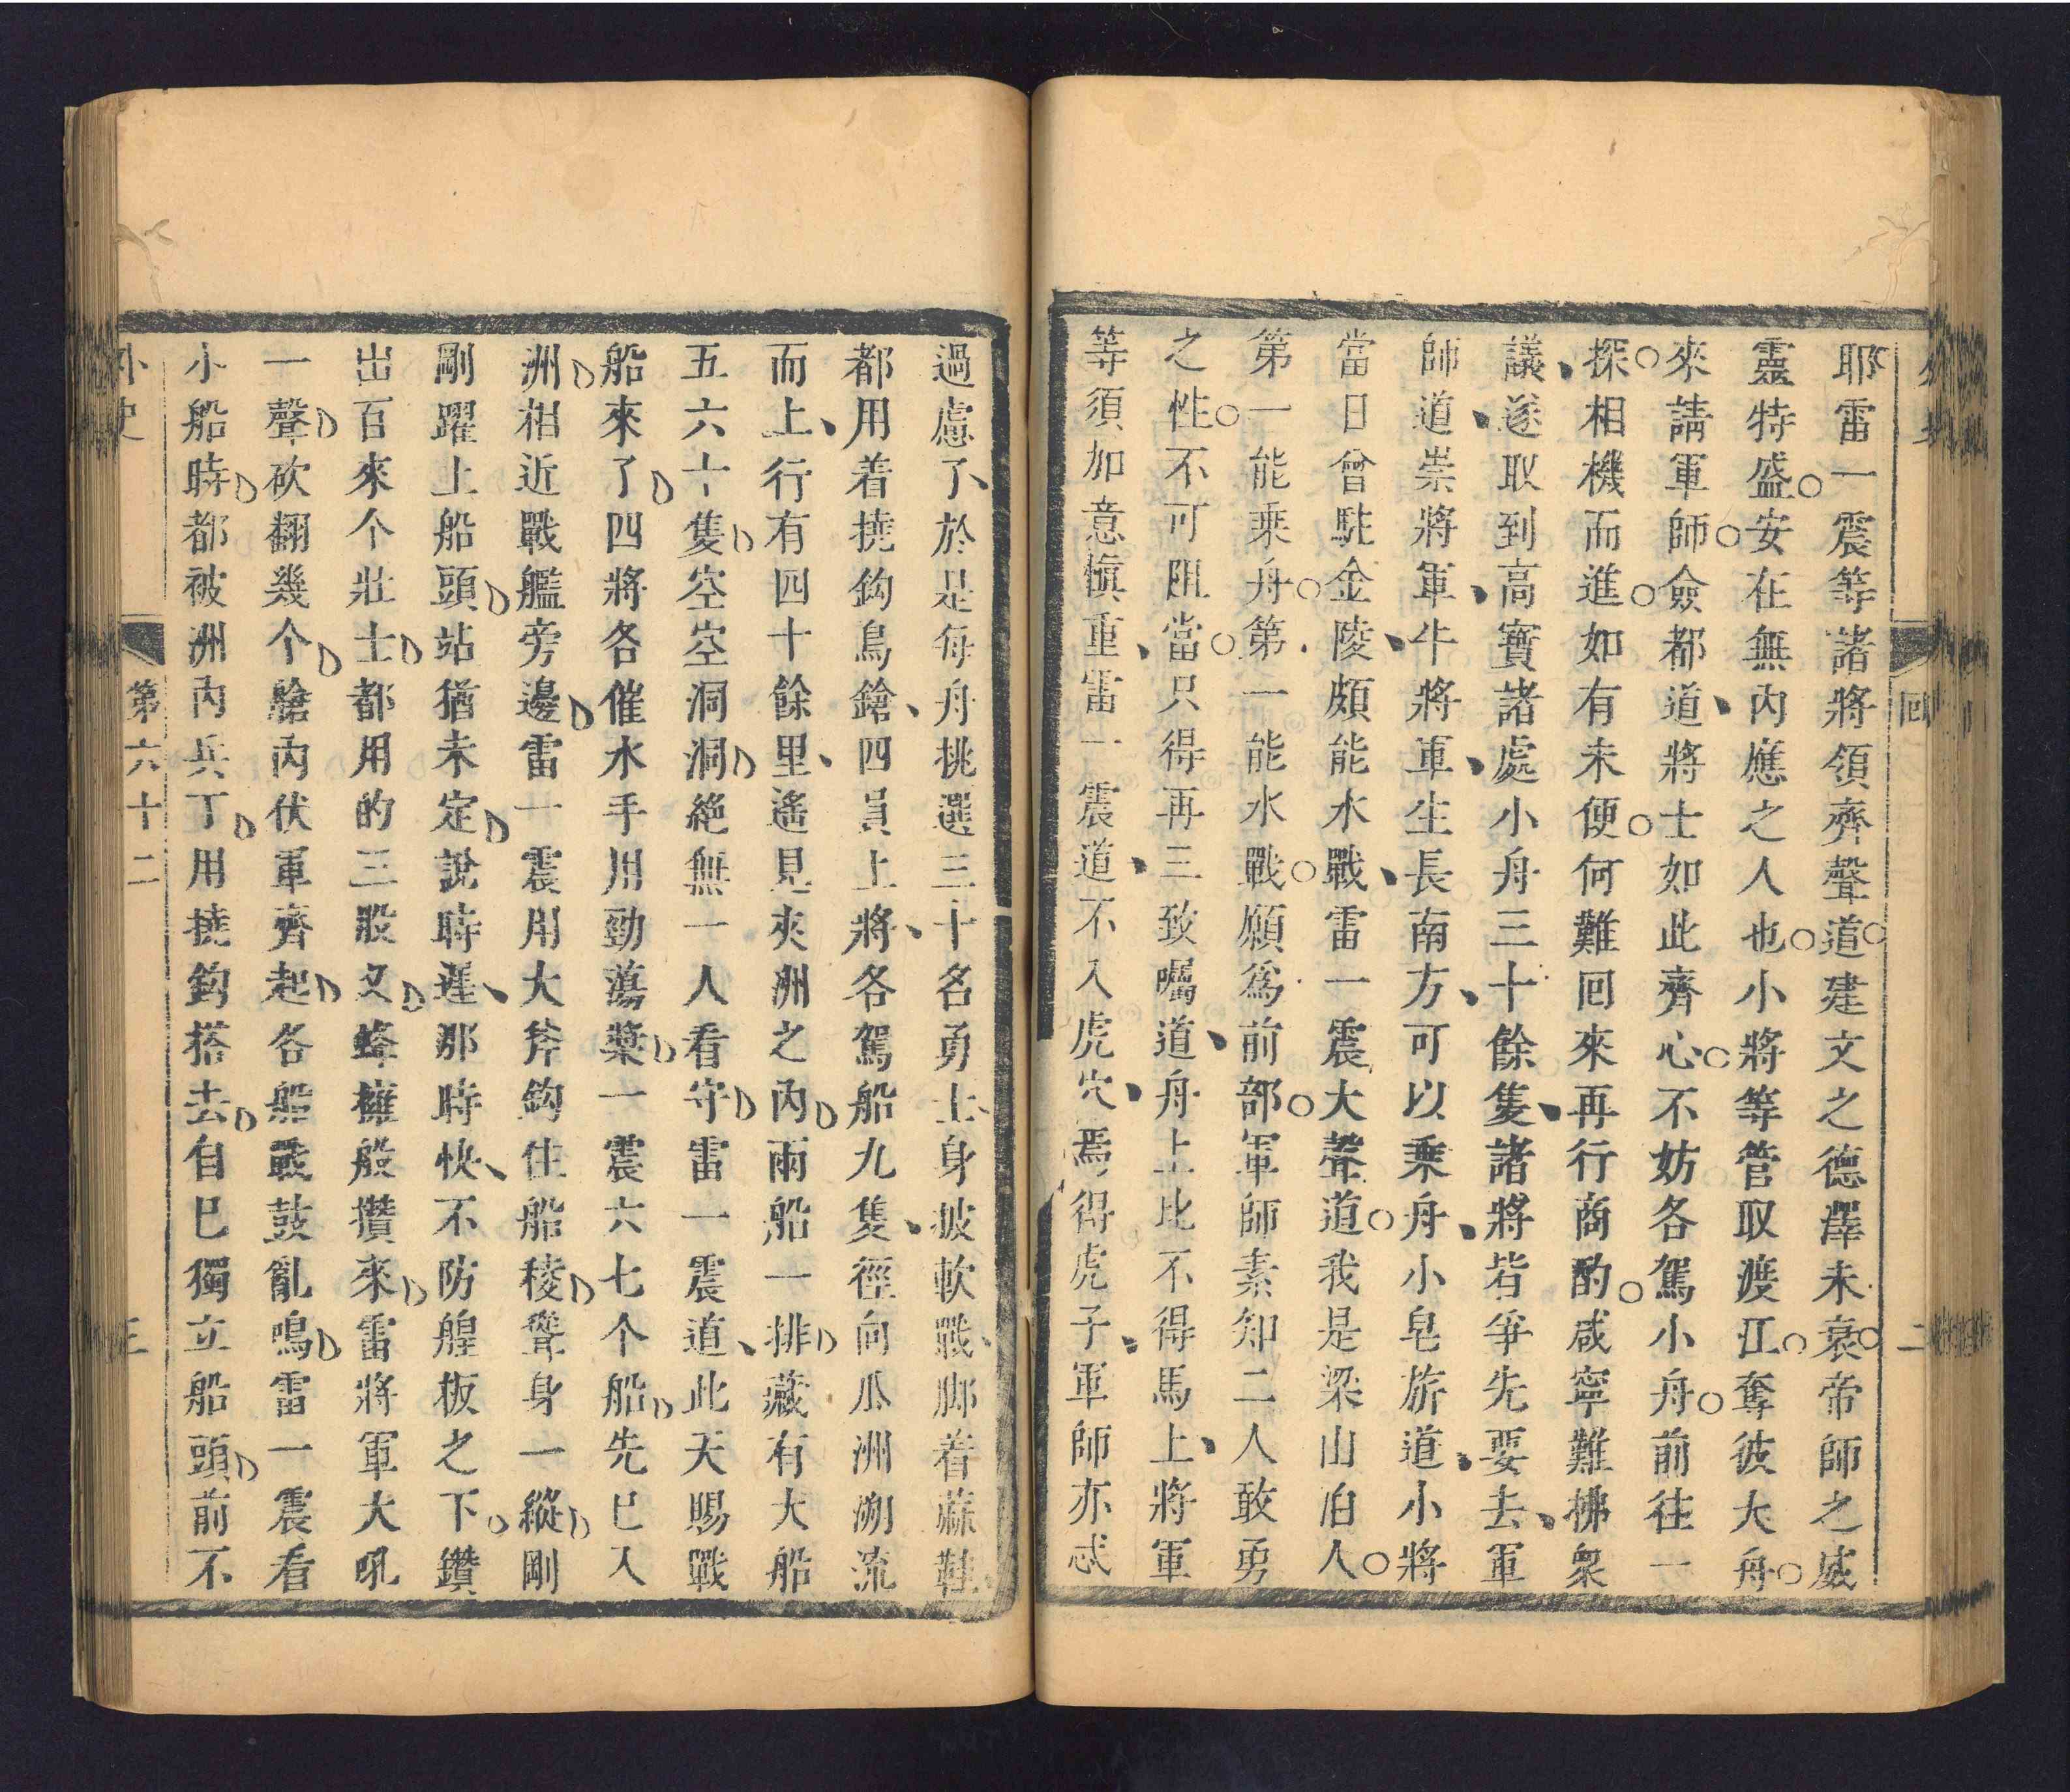 耶雷一震等諸將領齊聲道建文之德澤未衰帝師之威
靈特盛安在無內應之人也小將等管取渡江奪彼大舟
來請軍師僉都道將士如此齊心不妨各駕小舟前往一
探相機而進如有未便何難回來再行商酌咸寧難拂衆
議遂取到高寶諸處小舟三十餘隻諸將皆爭先要去軍
師道崇將軍牛將軍生長南方可以乘舟小皂旂道小將
當日曾駐金陵頗能水戰雷一震大聲道我是梁山泊人
第一能乘舟第一能水戰願爲前部軍師素知二人敢勇
之性不可阻當只得再三致囑道舟上比不得馬上將軍
等須加意愼重雷一震道不入虎穴焉得虎子軍師亦忒
過慮了於是每舟挑選三十名勇士身披軟戰脚着蔴鞋
都用着撓鈎鳥鎗四員上將各駕船九隻徑向瓜洲溯流
而上行有四十餘里遙見夾洲之內兩船一排藏有大船
五六十隻空空洞洞絕無一人看守雷一震道此天賜戰
船來了四將各催水手用勁蕩槳一震六七个船先已入
洲相近戰艦旁邊雷一震用大斧鈎住船稜聳身一縱剛
剛躍上船頭站猶未定說時遲那時快不防艎板之下鑽
出百來个壯士都用的三股叉蜂擁般攢來雷將軍大吼
一聲砍翻幾个艙內伏軍齊起各船戰鼓亂鳴雷一震看
小船時都被洲內兵丁用撓鈎搭去自已獨立船頭前不
外史
第六十二
回
二